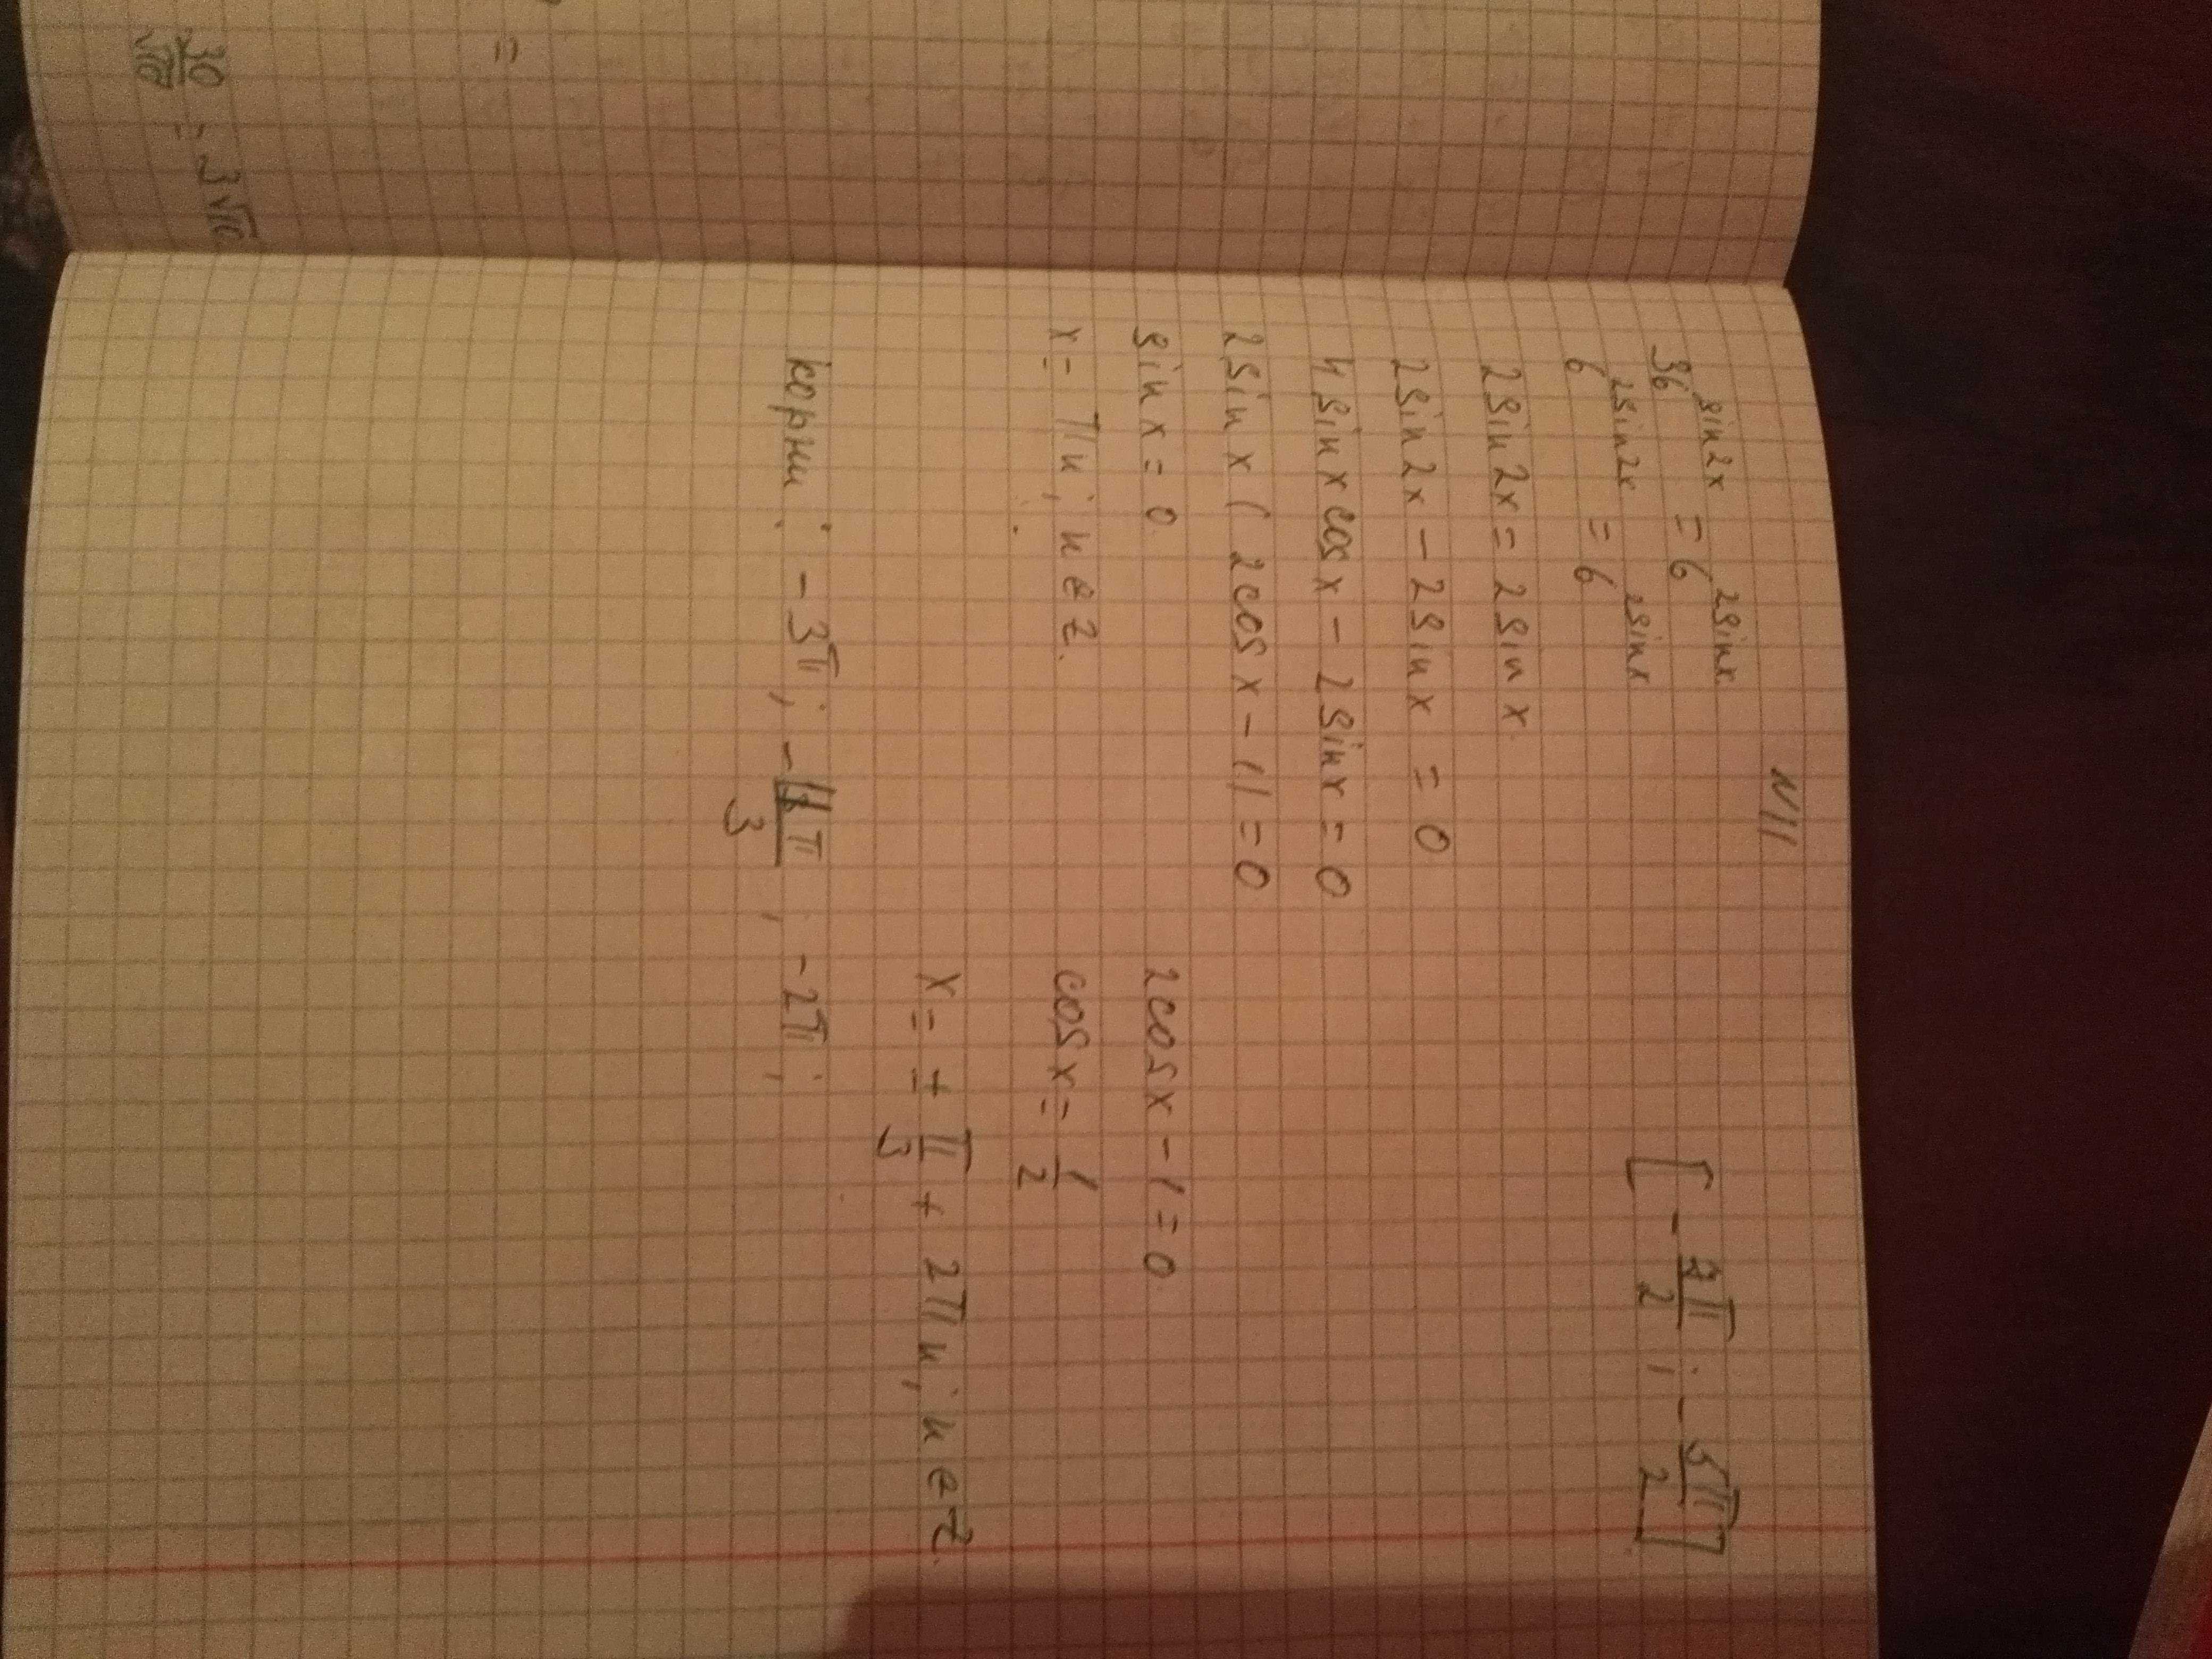 30/√10 = 3√10
=
N11
36^(sin2x) = 6^(2sinx)
[-7π/2; -5π/2]
6^(2sin2x) = 6^(2sinx)
2sin2x = 2sinx.
2sin2x - 2sinx = 0
4sinxcosx - 2sinx = 0
2sinx(2cosx - 1) = 0
sinx = 0 2cosx - 1 = 0
x = πn; n∈z. cosx = 1/2
x = ± π/3 + 2πn; n∈z.
корни: -3π; -11π/3; -2π;